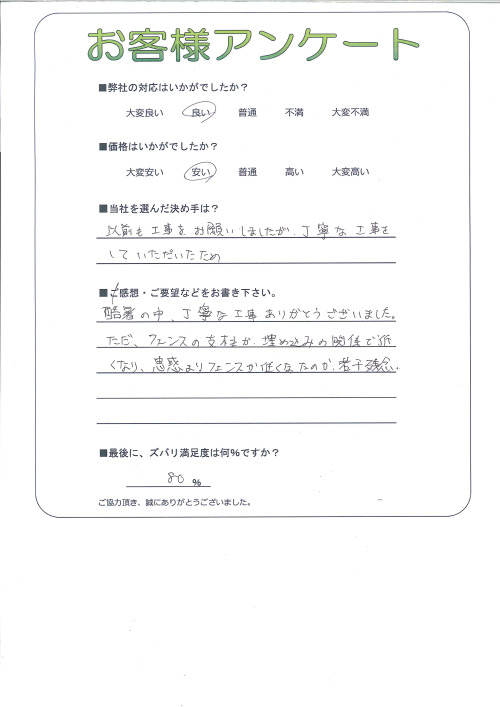 お客様アンケート
■弊社の対応はいかがでしたか？
大変良い 良い 普通 不満 大変不満
■価格はいかがでしたか？
大変安い 安い 普通 高い 大変高い
■当社を選んだ決め手は？
以前も工事をお願いしましたが、丁寧な工事を
していただいたため
■ご感想・ご要望などをお書き下さい。
酷暑の中、丁寧な工事ありがとうございました。
ただ、フェンスの支柱が埋め込みの関係で低
くなり、よりフェンスが低くなったのが、若干残念。
■最後に、ズバリ満足度は何%ですか？
80 %
ご協力頂き、誠にありがとうございました。